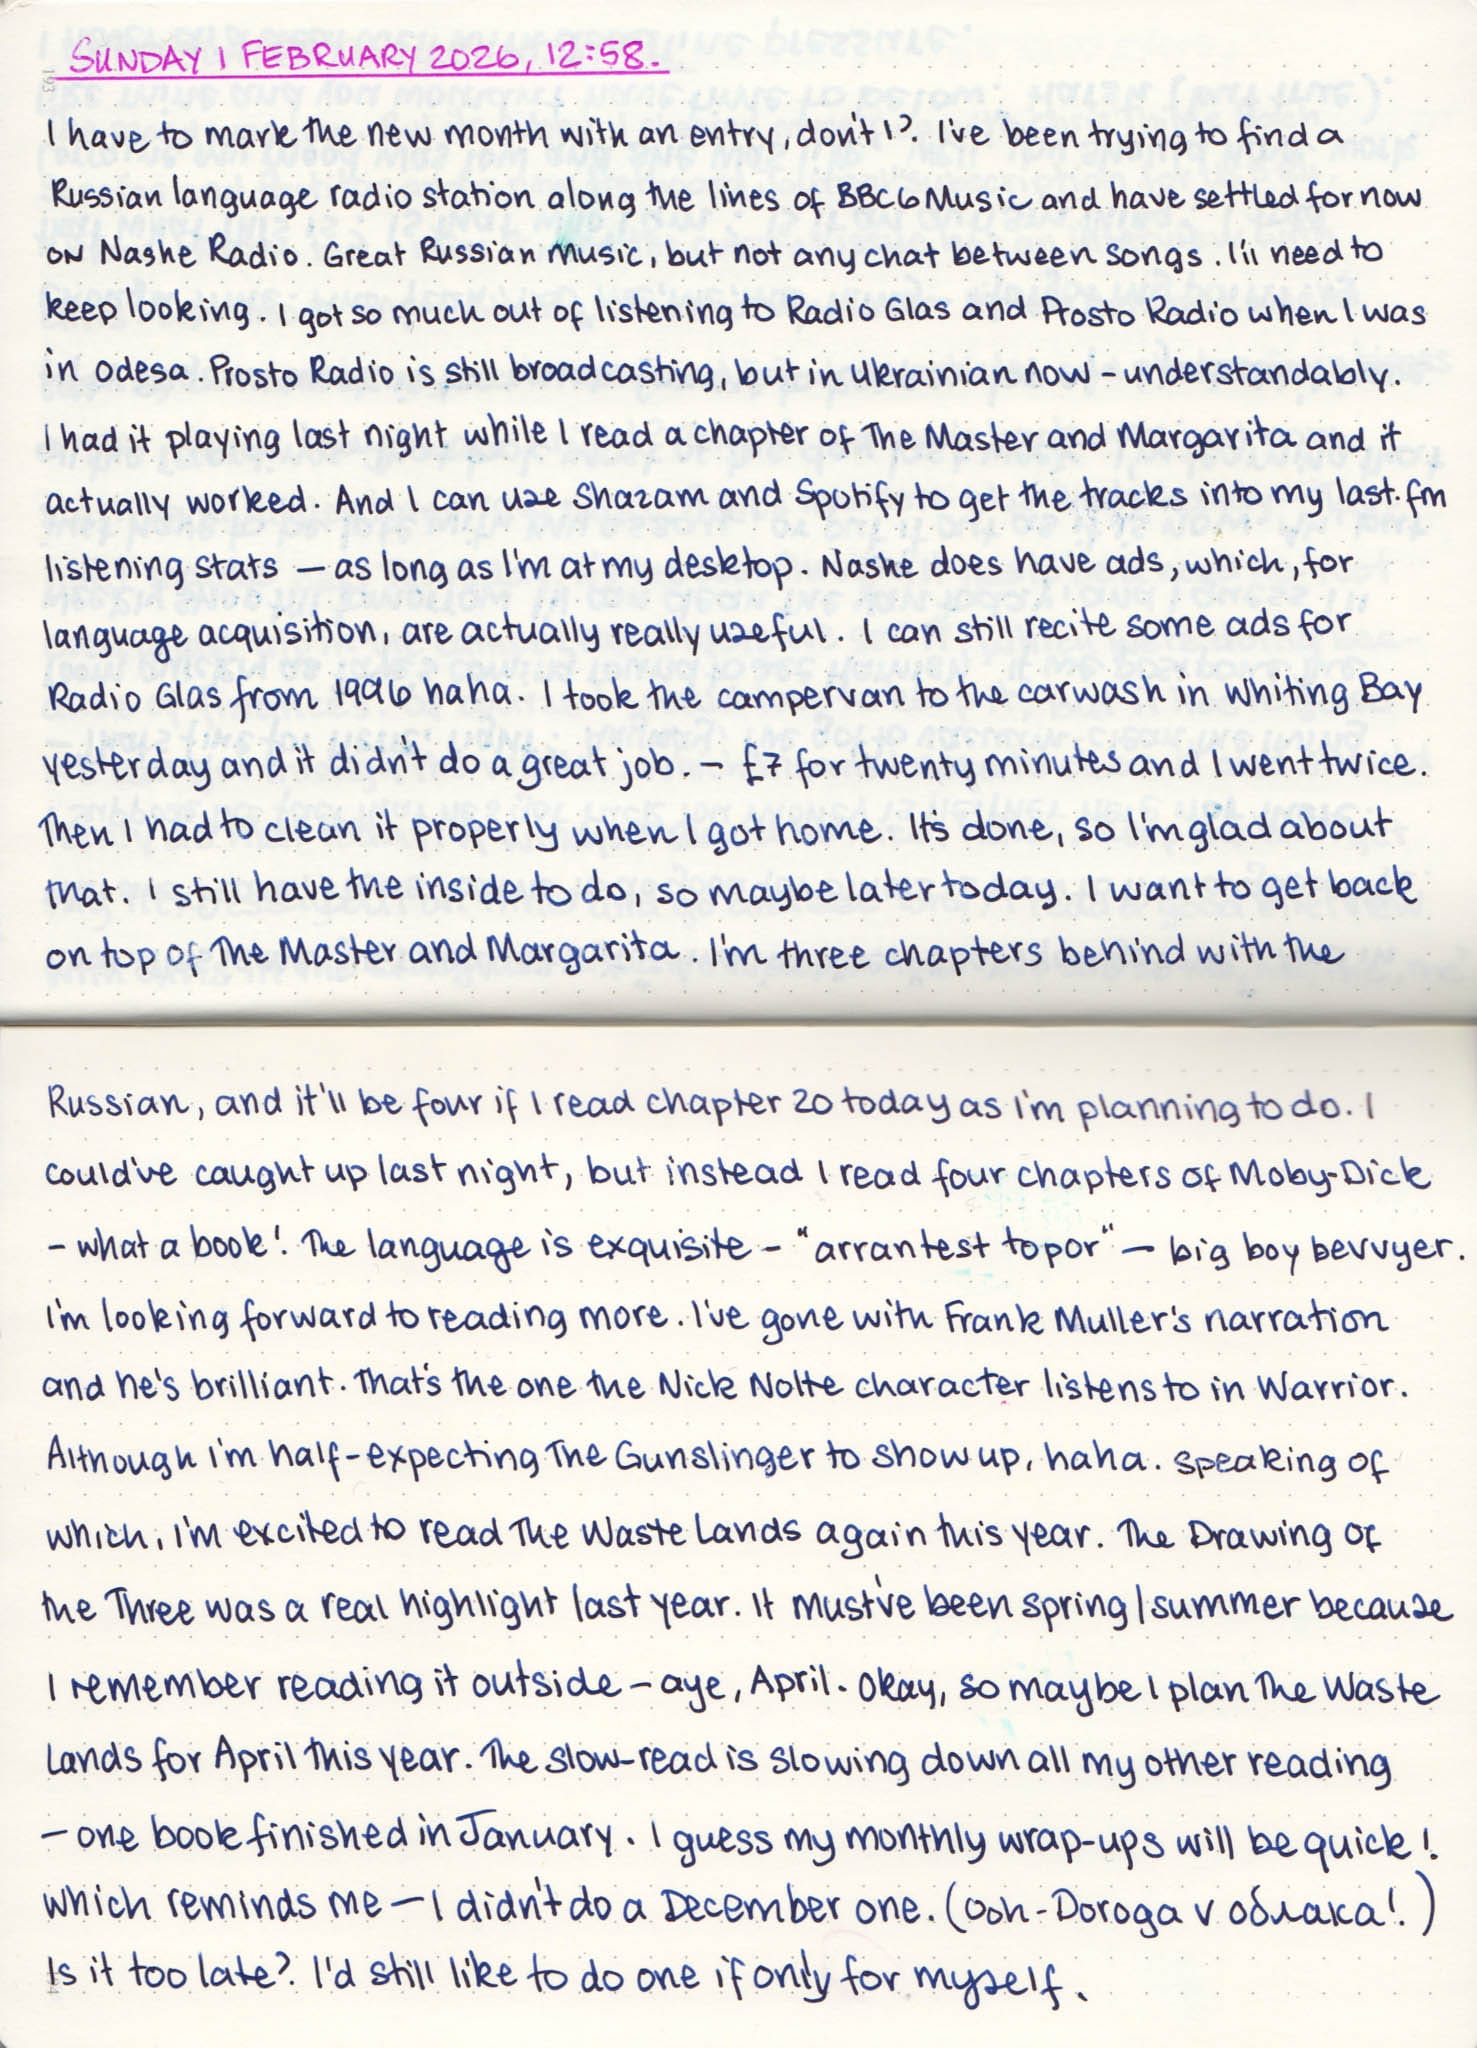 SUNDAY 1 FEBRUARY 2026, 12:58.
I have to mark the new month with an entry, don't I? I've been trying to find a
Russian language radio station along the lines of BBC6 Music and have settled for now
on Nashe Radio. Great Russian music, but not any chat between songs. I'll need to
keep looking. I got so much out of listening to Radio Glas and Prosto Radio when I was
in Odesa. Prosto Radio is still broadcasting, but in Ukrainian now – understandably.
I had it playing last night while I read a chapter of The Master and Margarita and it
actually worked. And I can use Shazam and Spotify to get the tracks into my last.fm
listening stats – as long as I'm at my desktop. Nashe does have ads, which, for
language acquisition, are actually really useful. I can still recite some ads for
Radio Glas from 1996 haha. I took the campervan to the carwash in Whiting Bay
yesterday and it didn't do a great job. – £7 for twenty minutes and I went twice.
Then I had to clean it properly when I got home. It's done, so I'm glad about
that. I still have the inside to do, so maybe later today. I want to get back
on top of The Master and Margarita. I'm three chapters behind with the
Russian, and it'll be four if I read chapter 20 today as I'm planning to do. I
could've caught up last night, but instead I read four chapters of Moby-Dick
– what a book! The language is exquisite – "arrantest topor" – big boy bevvyer.
I'm looking forward to reading more. I've gone with Frank Muller's narration
and he's brilliant. That's the one the Nick Nolte character listens to in Warrior.
Although I'm half-expecting The Gunslinger to show up, haha. Speaking of
which, I'm excited to read The Waste Lands again this year. The Drawing of
the Three was a real highlight last year. It must've been spring/summer because
I remember reading it outside – aye, April. Okay, so maybe I plan The Waste
Lands for April this year. The slow-read is slowing down all my other reading
– one book finished in January. I guess my monthly wrap-ups will be quick!
Which reminds me – I didn't do a December one. (Ooh – Doroga v облака!)
Is it too late? I'd still like to do one if only for myself.